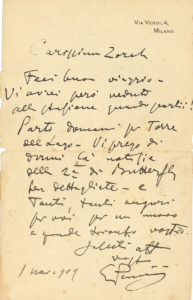 Via Verdi, 4,
Milano.
Carissimo Zorah
Feci buon viaggio -
Vi avrei però veduto
alla stazione quando partii!
Parto domani per Torre
del Lago - Vi prego di
darmi la notizia
della 2a di Butterfly
ben dettagliate - e
Tanti, tanti auguri
per voi per un nuovo
e grande trionfo vostro.
Saluti aff
vostro
G Puccini
1 nov. 909